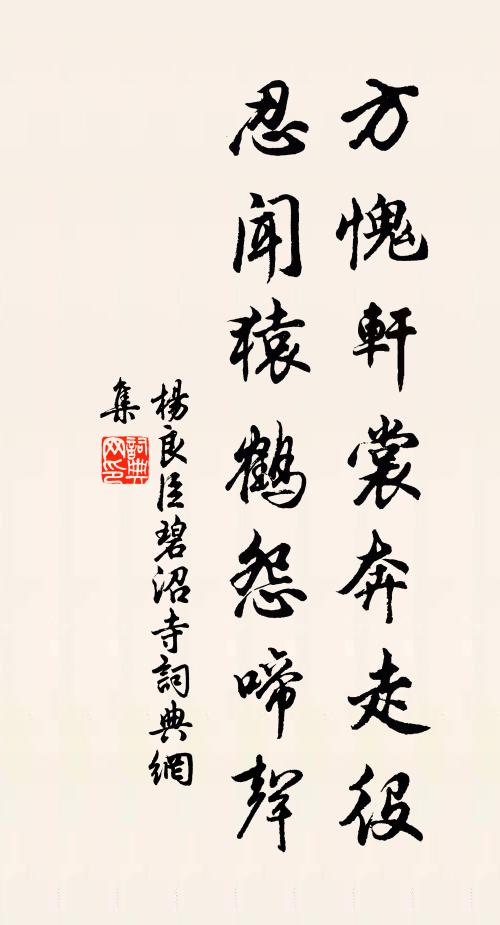 方愧軒裳奔走役
忍闻猿鶴怨啼聲
楊良臣碧沼寺詞典網
集
詞典网印